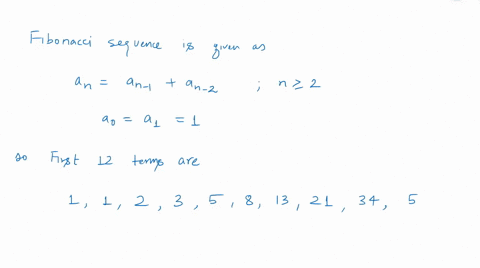 Fibonacci sequence is given as
aₙ = aₙ₋₁ + aₙ₋₂ ; n ≥ 2
a₀ = a₁ = 1
so First 12 terms are
1, 1, 2, 3, 5, 8, 13, 21, 34, 5